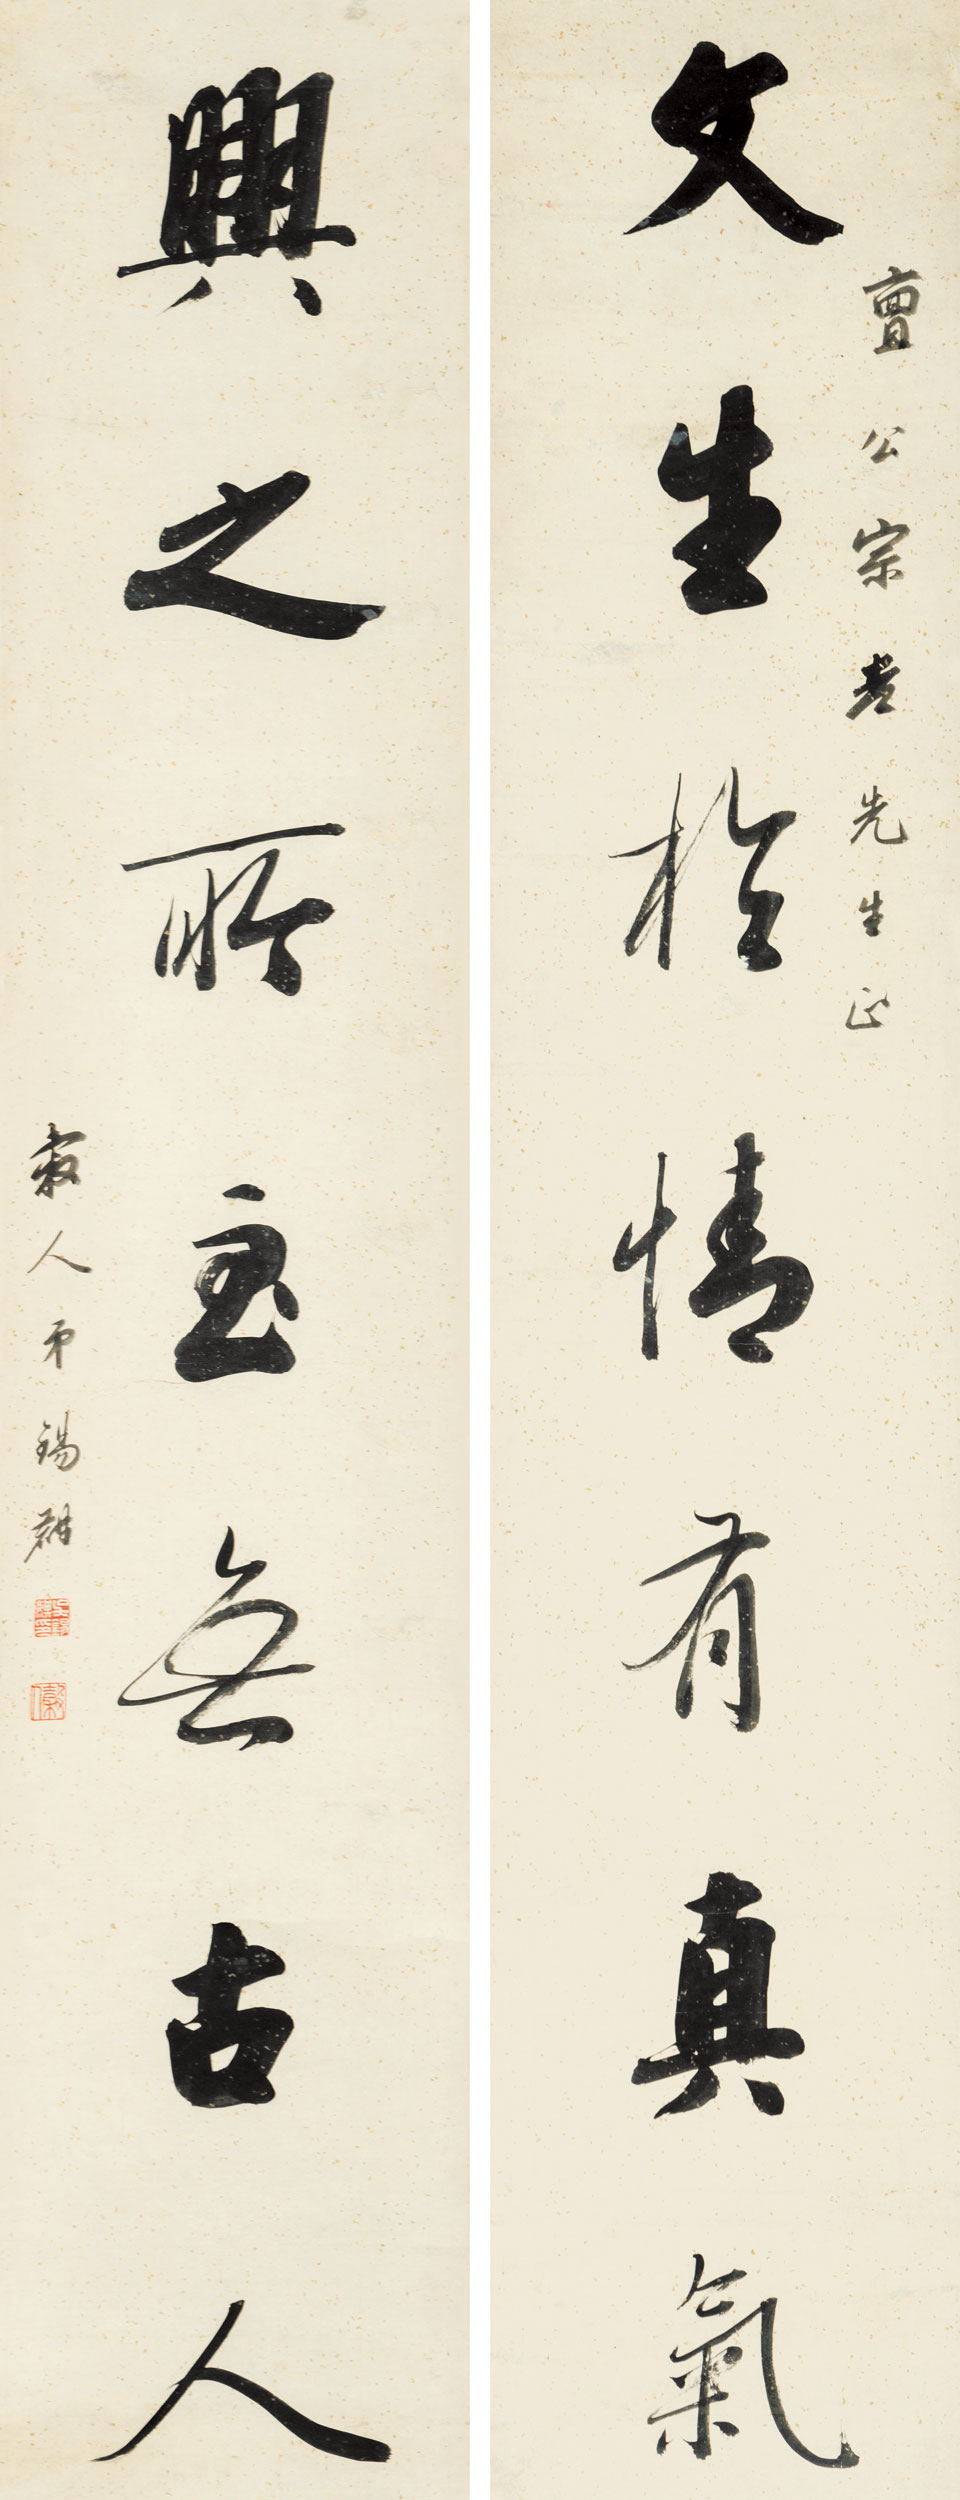 文生於情有真氣
亶公宗老先生正
興之所至無古人
人弟錫